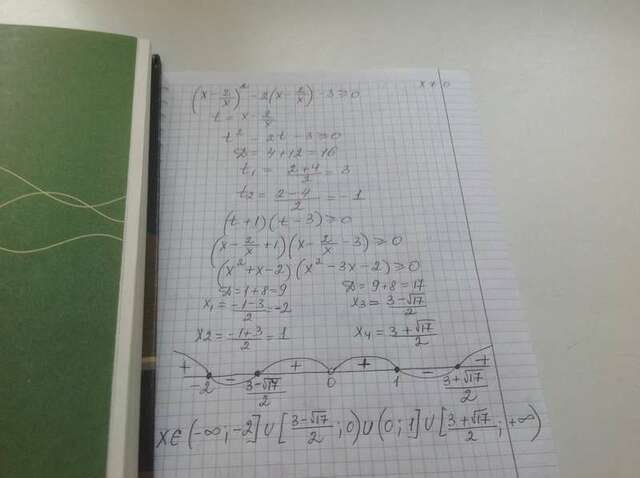 (x - 2/x)² - 2(x - 2/x) - 3 ≥ 0
x ≠ 0
t = x - 2/x
t² - 2t - 3 ≥ 0
D = 4 + 12 = 16
t₁ = (2+4)/2 = 3
t₂ = (2-4)/2 = -1
(t+1)(t-3) ≥ 0
(x - 2/x + 1)(x - 2/x - 3) ≥ 0
(x² + x - 2)(x² - 3x - 2) ≥ 0
D = 1 + 8 = 9
D = 9 + 8 = 17
x₁ = (-1-3)/2 = -2
x₃ = (3-√17)/2
x2 = (-1+3)/2 = 1
x₄ = (3+√17)/2
+ - + + - +
-2 (3-√17)/2 0 1 (3+√17)/2
x ∈ (-∞; -2] ∪ [(3-√17)/2; 0) ∪ (0; 1] ∪ [(3+√17)/2; +∞)